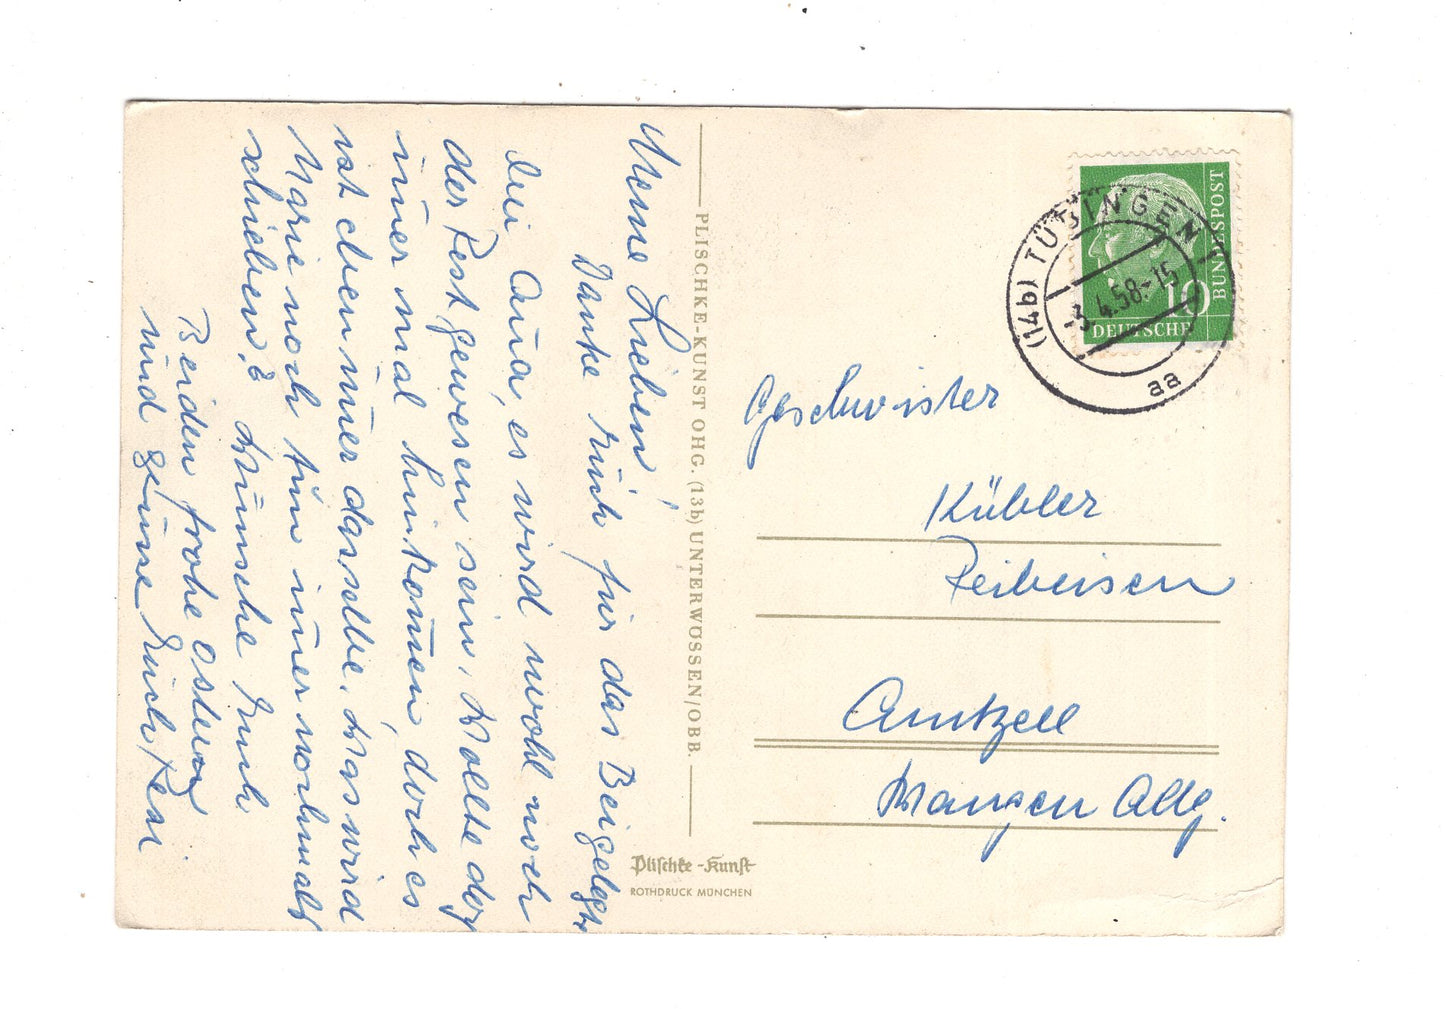 Meine Lieben!
Danke Euch für das Beigelegte
bei Ana, es wird wohl noch
der Rest gewesen sein. Wollte doch
im̄er mal hinkom̄en, doch es
ist eben im̄er dasselbe. Was wird
Marie noch tun im̄er nochmals
schieben? Wünsche Euch
Beiden frohe Ostern
und grüsse Euch
PLISCHKE-KUNST OHG. (13b) UNTERWÖSSEN/OBB.
Plischke-Kunst
ROTHDRUCK MÜNCHEN
DEUTSCHE
BUNDESPOST
10
(14b) TÜBINGEN
-3.4.58.-15
aa
Geschwister
Kübler
Reibeisen
Amtzell
Wangen Allg.